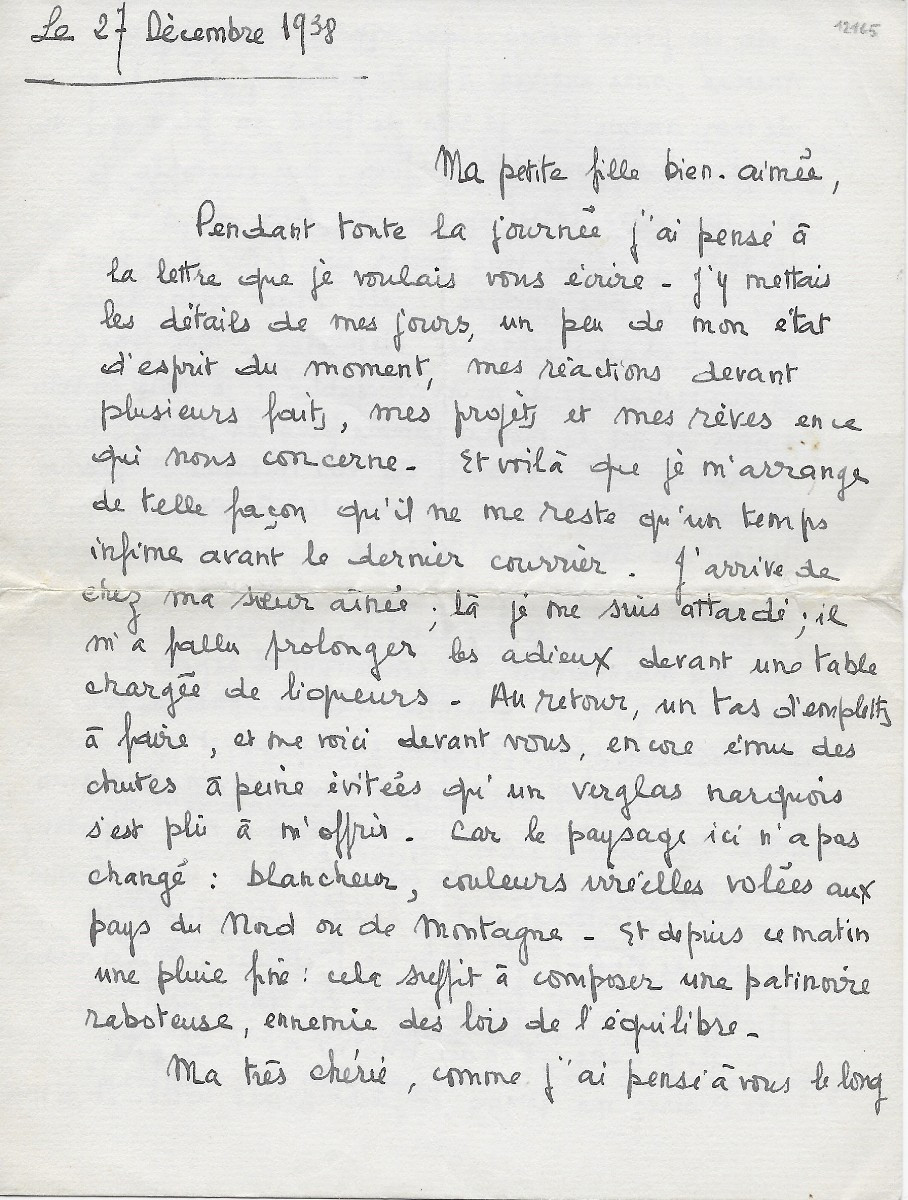 Le 27 Décembre 1938
12165
Ma petite fille bien-aimée,
Pendant toute la journée j'ai pensé à
la lettre que je voulais vous écrire - J'y mettais
les détails de mes jours, un peu de mon état
d'esprit du moment, mes réactions devant
plusieurs faits, mes projets et mes rêves en ce
qui nous concerne - Et voilà que je m'arrange
de telle façon qu'il ne me reste qu'un temps
infime avant le dernier courrier. J'arrive de
chez ma sœur aînée ; là je me suis attardé ; il
m'a fallu prolonger les adieux devant une table
chargée de liqueurs - Au retour, un tas d'emplettes
à faire, et me voici devant vous, encore ému des
chutes à peine évitées qu'un verglas narquois
s'est plû à m'offrir. Car le paysage ici n'a pas
changé : blancheur, couleurs irréelles volées aux
pays du Nord ou de Montagne - Et depuis ce matin
une pluie fine : cela suffit à composer une patinoire
raboteuse, ennemie des lois de l'équilibre -
Ma très chérie, comme j'ai pensé à vous le long